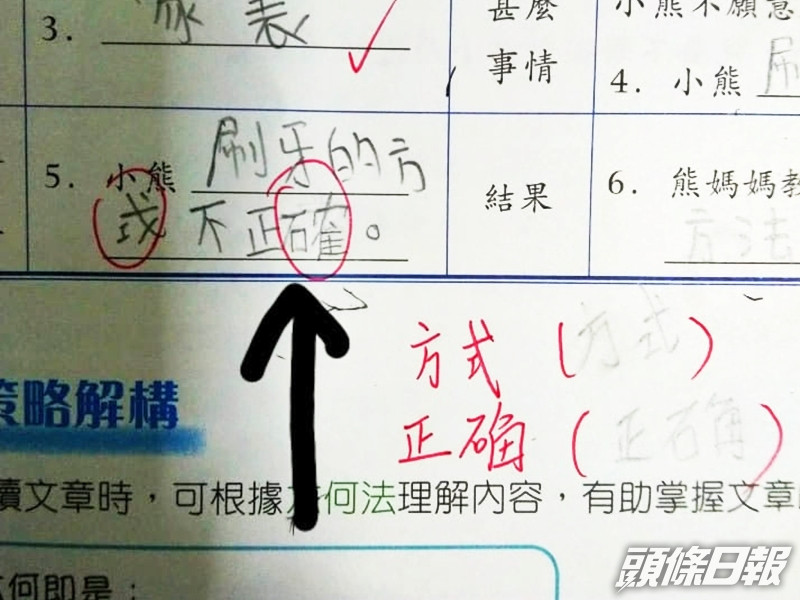 3. 家長
甚麼
事情
小熊不願意
4. 小熊 刷
5. 小熊 刷牙的方
式不正確。
結果
6. 熊媽媽教
方法
方式(方式)
正确(正确)
策略解構
讀文章時，可根據六何法理解內容，有助掌握文章
六何即是：
頭條日報